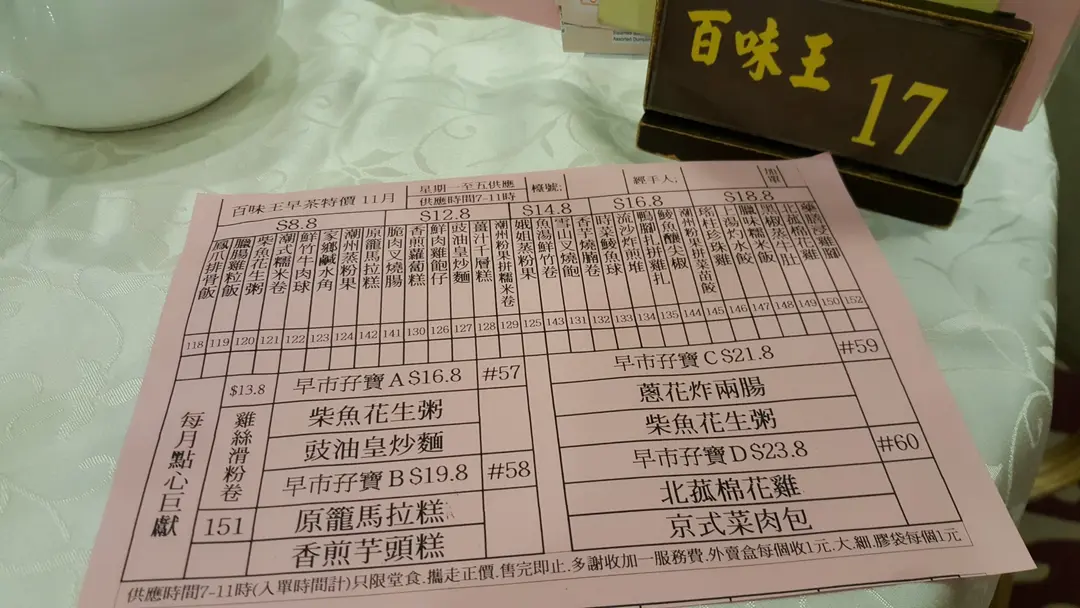 百味王
17
百味王早茶特價 11月
星期一至五供應
供應時間7-11時
檯號;
經手人;
加單
$8.8
$12.8
$14.8
$16.8
$18.8
鳳爪排骨飯
臘腸雞粒飯
柴魚花生粥
潮式糯米卷
鮮竹牛肉球
家鄉鹹水角
潮州蒸粉果
原籠馬拉糕
脆肉叉燒腸
香煎蘿蔔糕
鮮肉雞飽仔
豉油皇炒麵
薑汁千層糕
潮州粉果拼糯米卷
娥姐蒸粉果
魚湯鮮竹卷
雪山叉燒飽
香芋燒腩卷
時菜鯪魚球
流沙炸煎堆
鴨腳扎拼雞扎
鯪魚釀三椒
瑤柱珍珠雞
臘味糯米飯
北菰棉花雞
118 119 120 121 122 123 124 142 141 130 126 127 128 129 125 143 131 132 133 134 135 144 145 146 147 148 149 150 152
每月點心巨獻
$13.8
雞絲滑粉卷
151
早市孖寶 A $16.8 #57
柴魚花生粥
豉油皇炒麵
早市孖寶 B $19.8 #58
原籠馬拉糕
香煎芋頭糕
早市孖寶 C $21.8 #59
蔥花炸兩腸
柴魚花生粥
早市孖寶 D $23.8 #60
北菰棉花雞
京式菜肉包
供應時間7-11時(入單時間計)只限堂食.攜走正價.售完即止.多謝收加一服務費.外賣盒每個收1元.大.細.膠袋每個1元